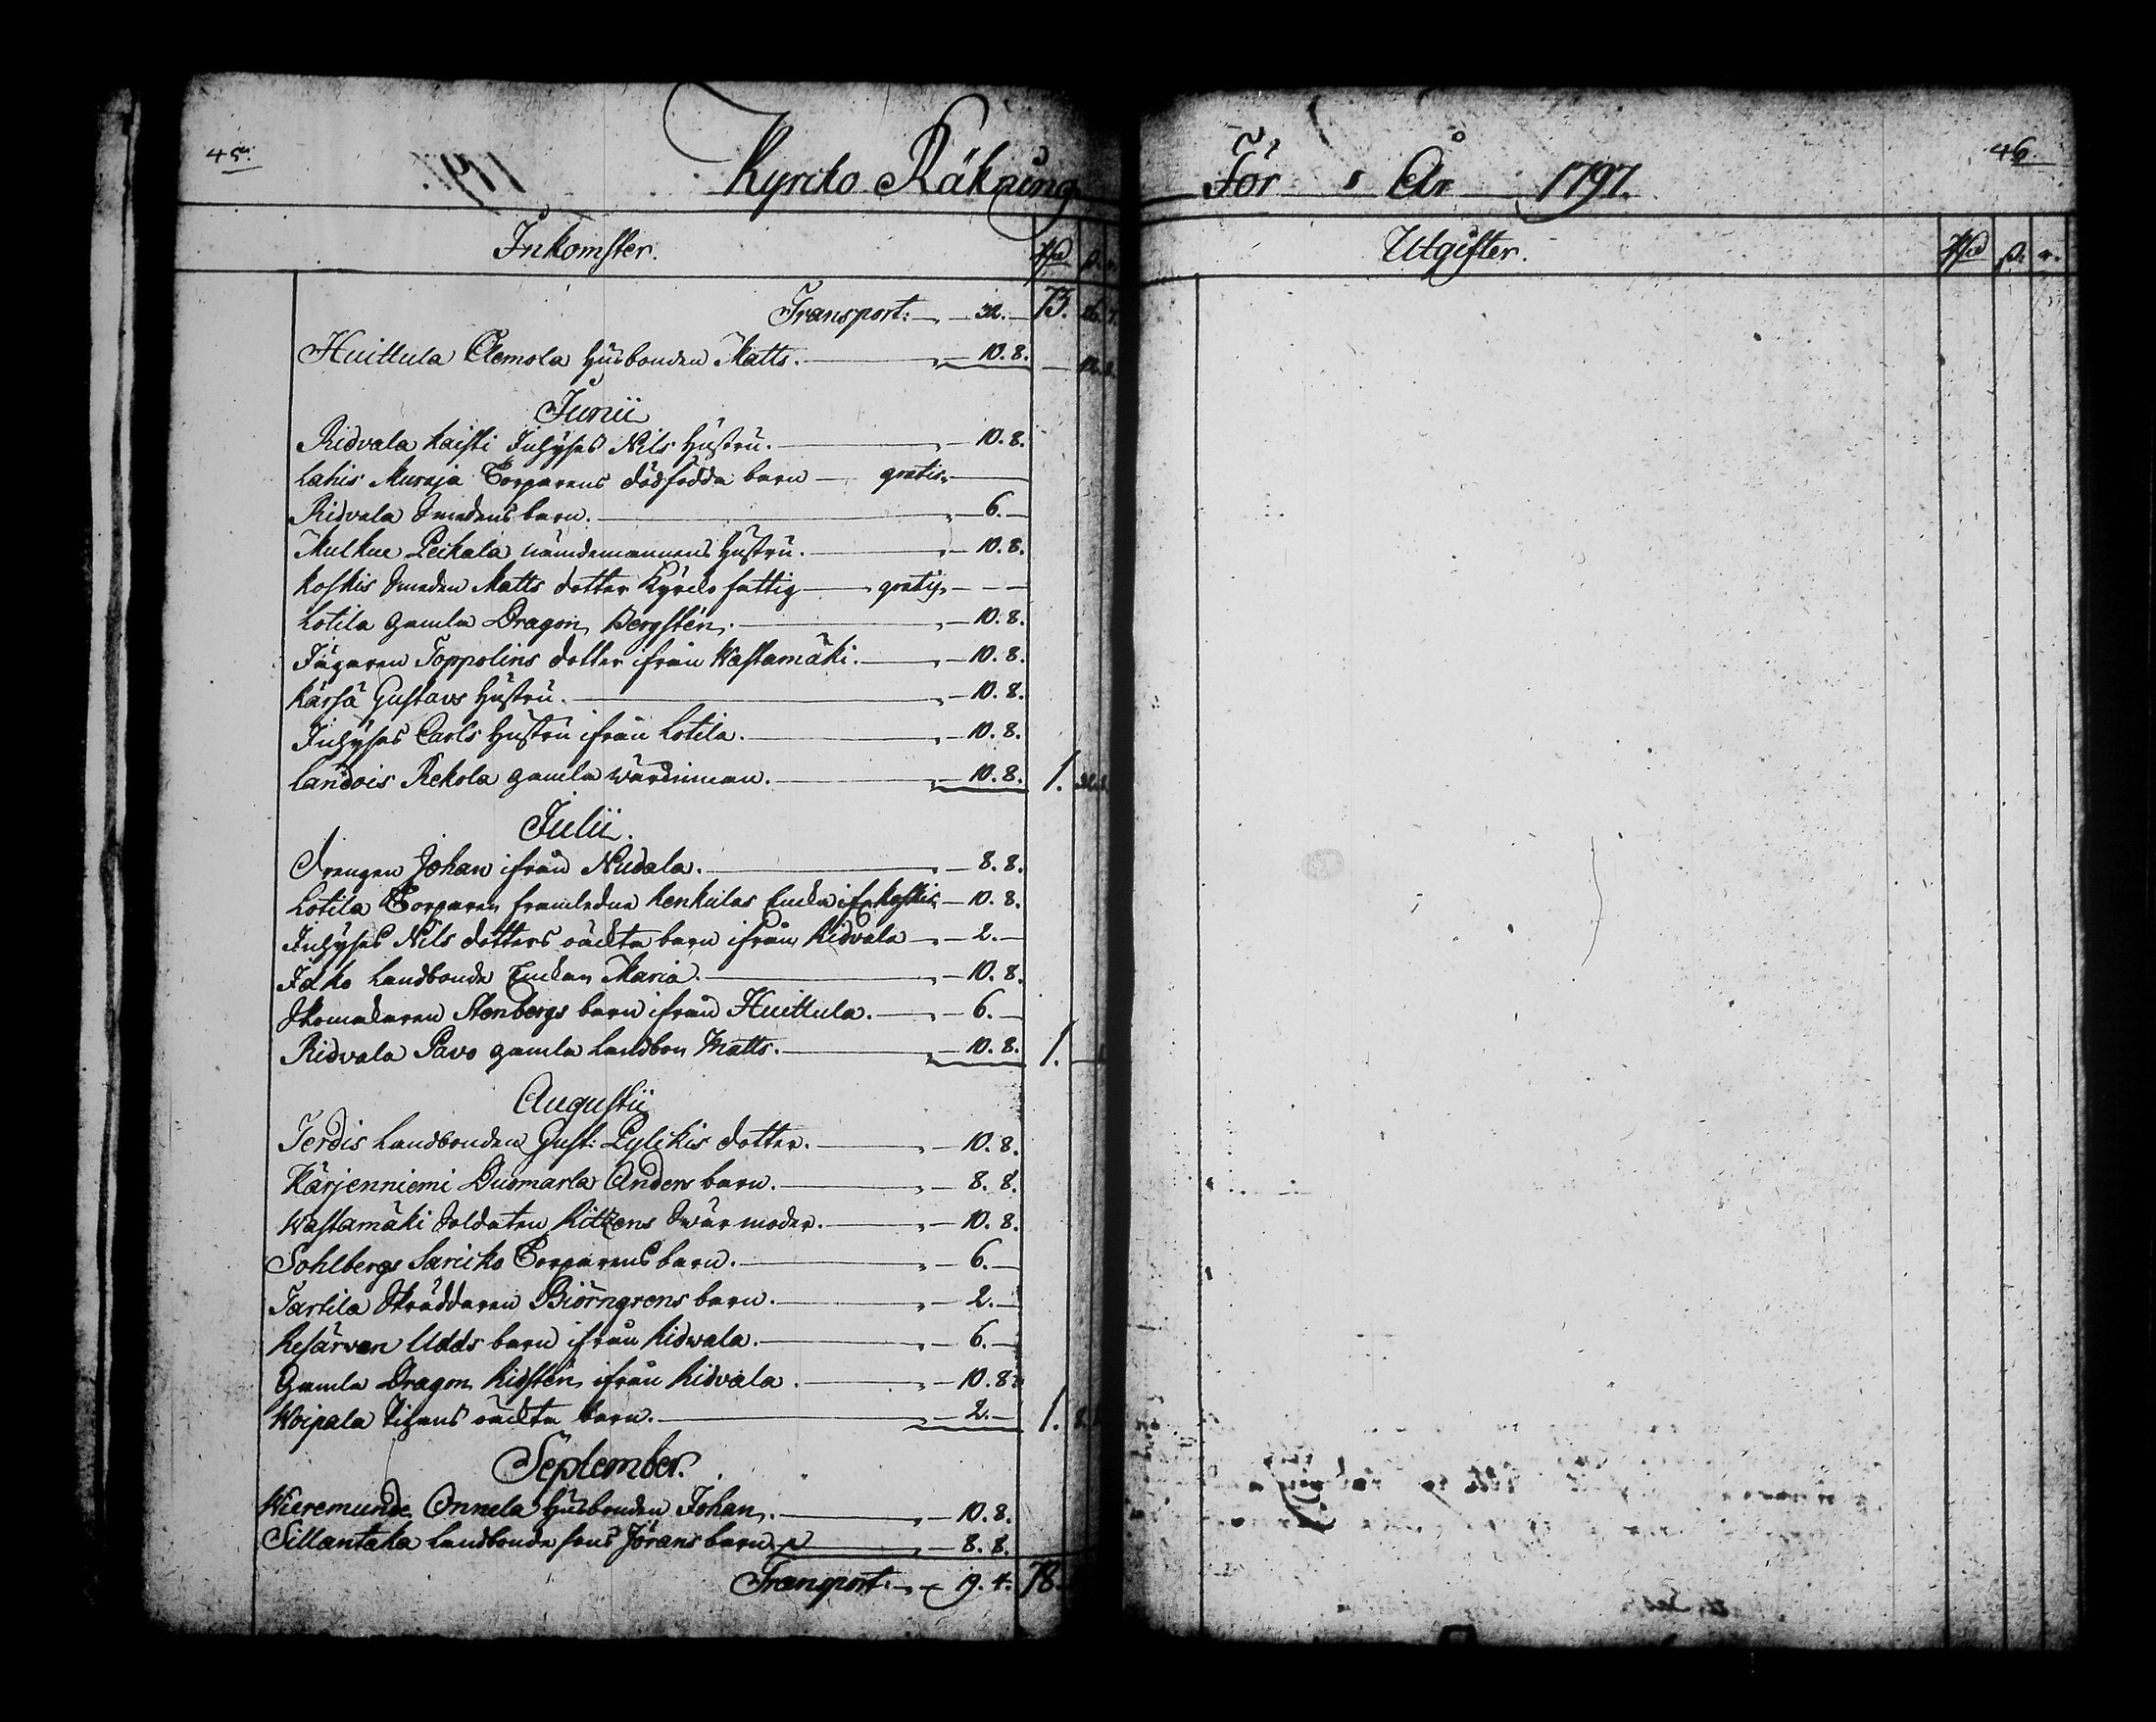 45.
Kyrcko Räkning
Inkomster.
Transport: 32. 73. 26. 7.
Huittula Clemola Husbonden Matts. 10. 8.
Junii
Ridvala Kaisti Inhyses Nils Hustru. 10. 8.
Lahis Muraja Torparens dödfödda barn gratis.
Ridvala Smedens barn. 6.
Mulkue Peckala nämdemannens Hustru. 10. 8.
Koskis Smeden Matts dotter Kyrcko fattig gratis
Lotila gamla Dragon Bergstén. 10. 8.
Jägaren Toppolins dotter ifrån Wastamäki. 10. 8.
Kärsä Gustavs Hustru. 10. 8.
Inhyses Carls Hustru ifrån Lotila. 10. 8.
Landois Rekola gamla Wärdinnan. 10. 8. 1.
Julii.
Drengen Johan ifrån Nudala. 8. 8.
Lotila Torparen framledne Kenkulas Encka if. Koskis 10. 8.
Inhyses Nils dotters oäckta barn ifrån Ridvala 2.
Jacko Landbonde Enckan Maria. 10. 8.
Skomakaren Stenbergs barn ifrån Huittula. 6.
Ridvala Pavo gamla Landbon Matts. 10. 8. 1.
Augustii
Jerdis Landbonden Gust: Pylickis dotter. 10. 8.
Kärjenniemi Duomarla Anders barn. 8. 8.
Wastamäki Soldaten Kitzens Swärmoder. 10. 8.
Sohlbergs Saricko Torparens barn. 6.
Tartila Skräddaren Biörngrens barn. 2.
Resärven Udds barn ifrån Ridwala. 6.
Gamla Dragon Ridstén ifrån Ridvala. 10. 8.
Woipala Pigans oäckta barn. 2. 1.
September.
Wieremunde Onnela Husbonden Johan. 10. 8.
Sillantaka Landbonde sons Jörans barn 8. 8.
Transport: 19. 4. 78.
46.
För År 1797.
Utgifter.